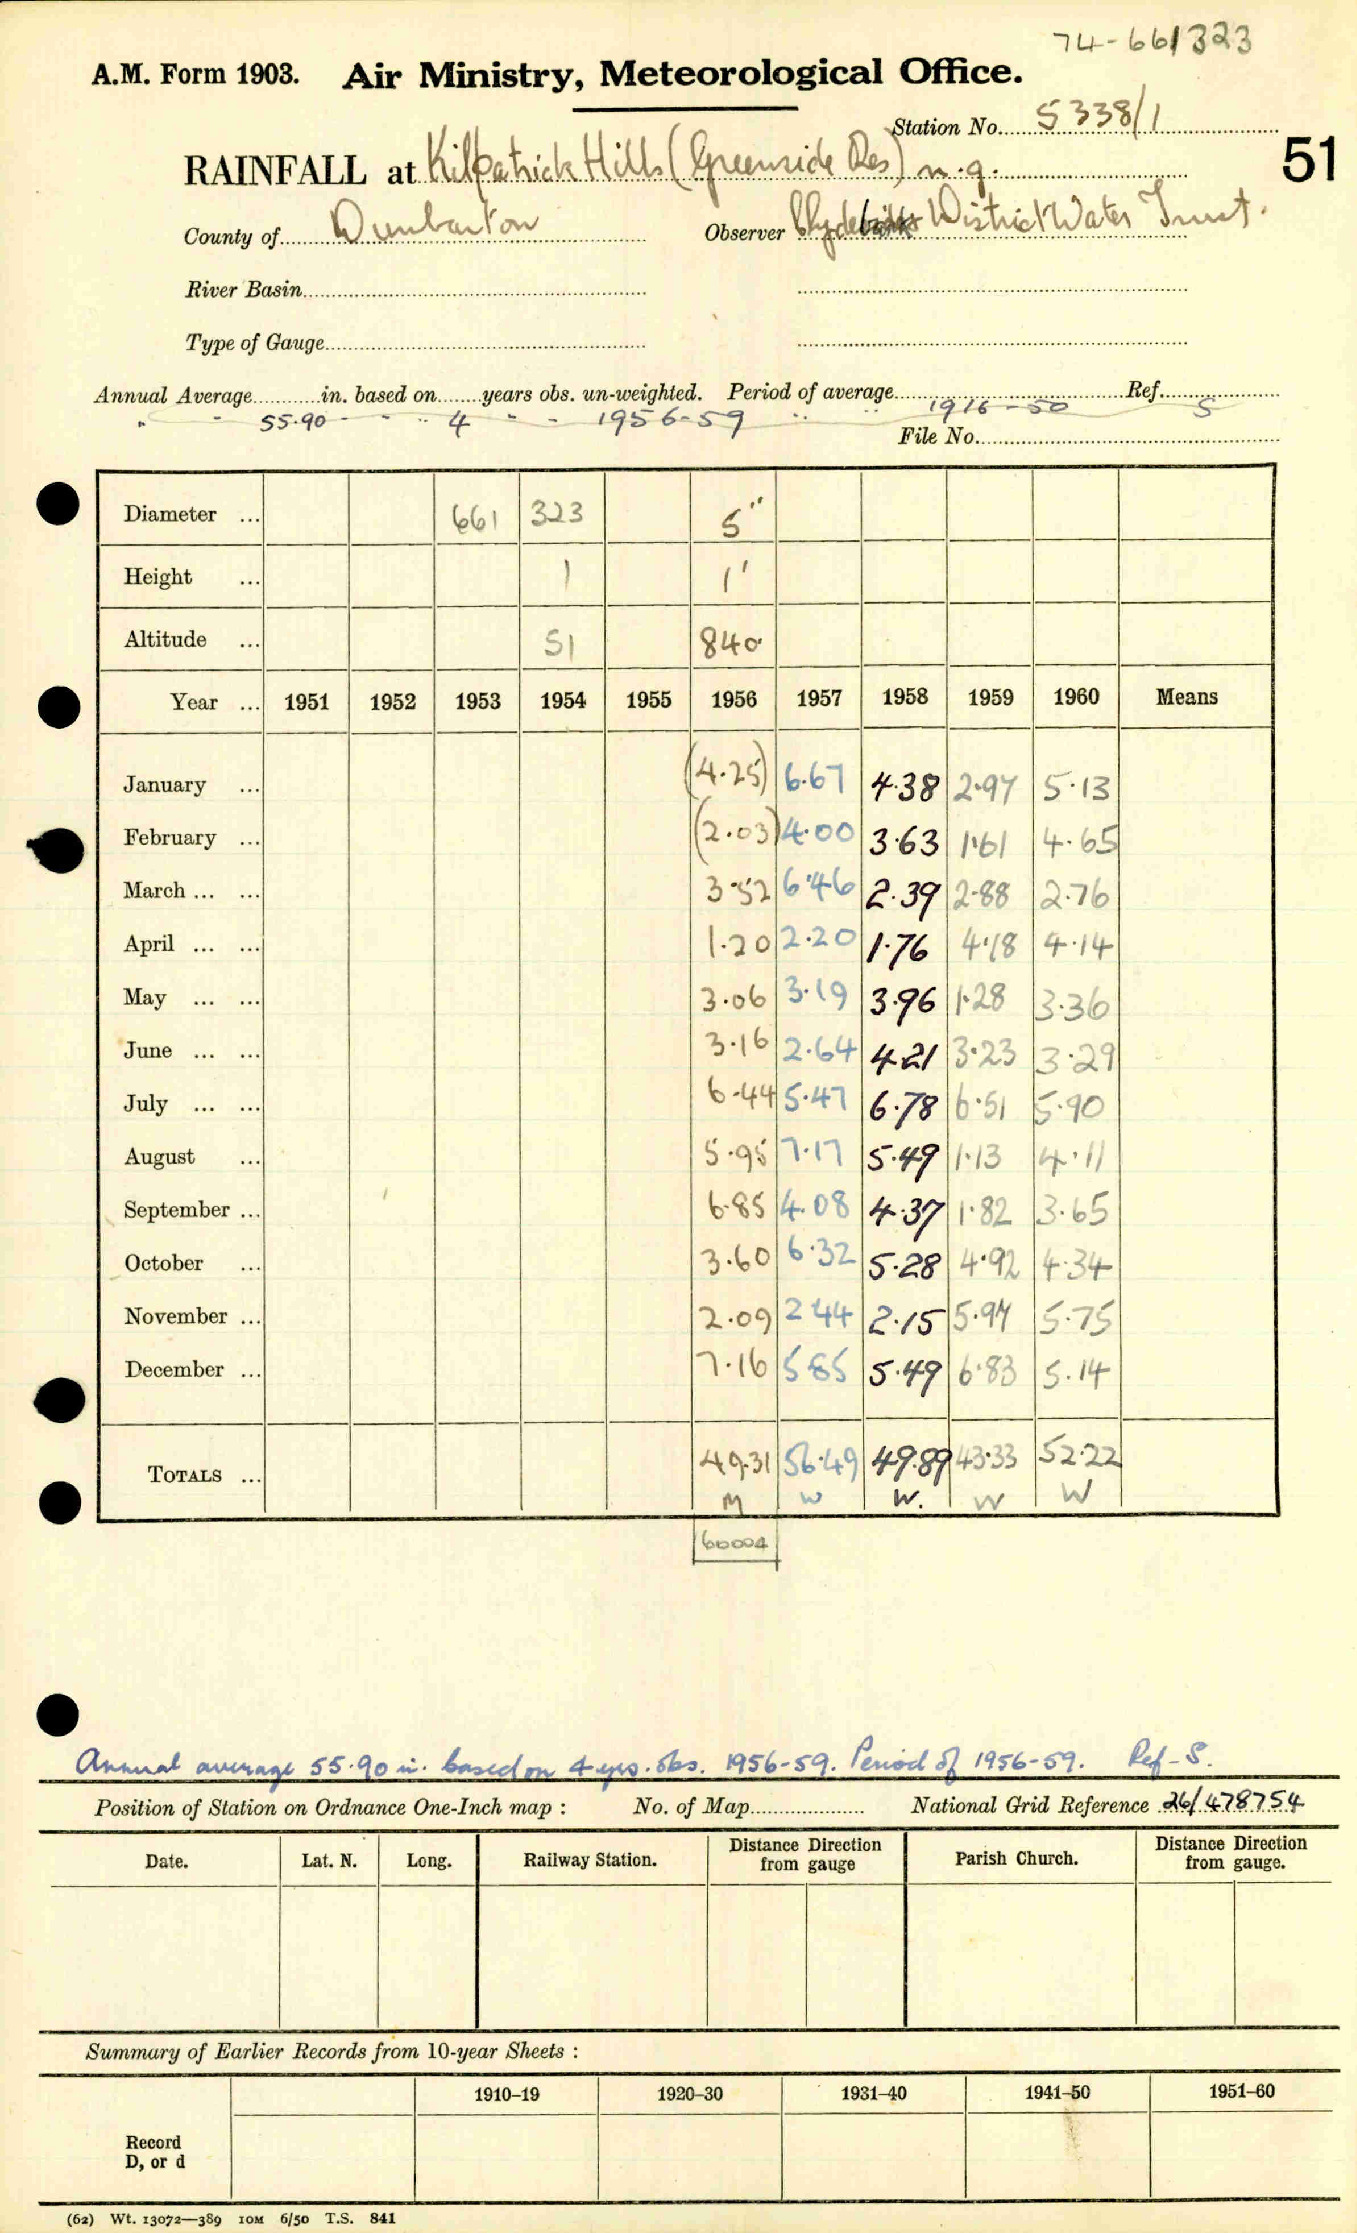 74-661323
A.M. Form 1903. Air Ministry, Meteorological Office.
Station No. 5338/1
RAINFALL at Kilpatrick Hills (Greenside Res) m.g. 51
County of Dunbarton Observer Clydebank District Water Trust.
River Basin
Type of Gauge
Annual Average in. based on years obs. un-weighted. Period of average Ref.
" - 55.90 - - " 4 " - 1956-59 " " 1916-50 S
File No.
Diameter ... 661 323 5"
Height ... 1 1'
Altitude ... 51 840
Year ... 1951 1952 1953 1954 1955 1956 1957 1958 1959 1960 Means
January ... (4.25) 6.67 4.38 2.97 5.13
February ... (2.03) 4.00 3.63 1.61 4.65
March ... ... 3.52 6.46 2.39 2.88 2.76
April ... ... 1.20 2.20 1.76 4.18 4.14
May ... ... 3.06 3.19 3.96 1.28 3.36
June ... ... 3.16 2.64 4.21 3.23 3.29
July ... ... 6.44 5.47 6.78 6.51 5.90
August ... 5.95 7.17 5.49 1.13 4.11
September ... 6.85 4.08 4.37 1.82 3.65
October ... 3.60 6.32 5.28 4.92 4.34
November ... 2.09 2.44 2.15 5.97 5.75
December ... 7.16 5.85 5.49 6.83 5.14
TOTALS ... 49.31 56.49 49.89 43.33 52.22
M W W. W W
60004
Annual average 55.90 in. based on 4 yrs. obs. 1956-59. Period of 1956-59. Ref - S.
Position of Station on Ordnance One-Inch map : No. of Map National Grid Reference 26/478754
Date. Lat. N. Long. Railway Station. Distance Direction from gauge Parish Church. Distance Direction from gauge.
Summary of Earlier Records from 10-year Sheets :
1910–19 1920–30 1931–40 1941–50 1951–60
Record
D, or d
(62) Wt. 13072—389 10M 6/50 T.S. 841